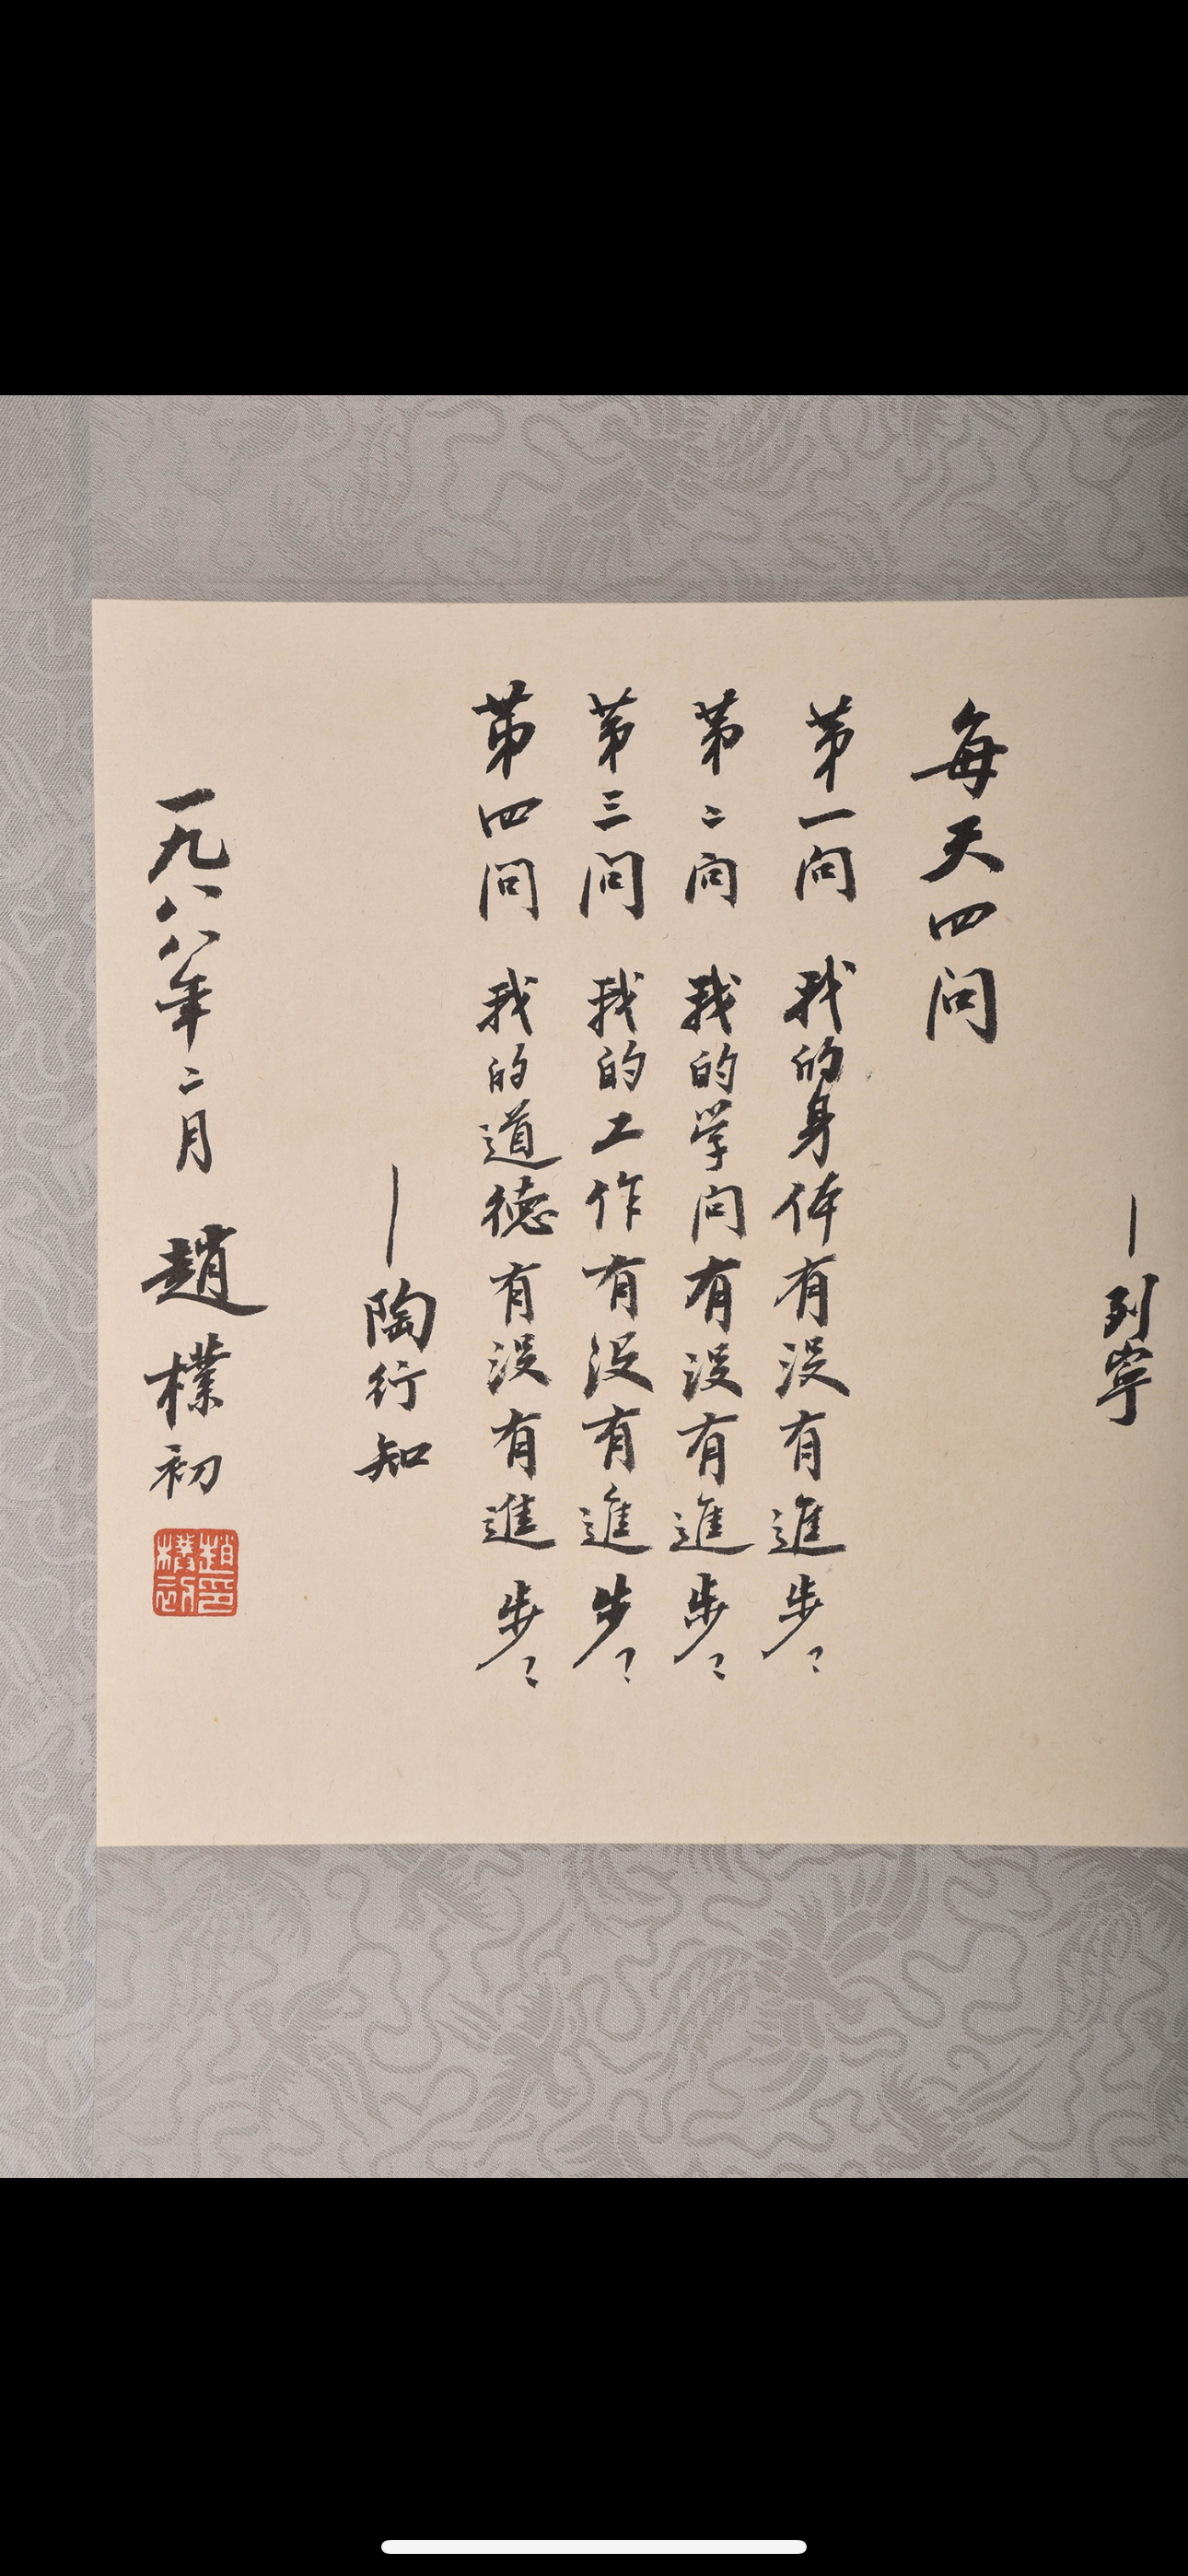 ——列宁
每天四问
第一问 我的身体有没有進步？
第二问 我的学问有没有進步？
第三问 我的工作有没有進步？
第四问 我的道德有没有進步？
——陶行知
一九八八年二月 趙樸初
趙樸初印